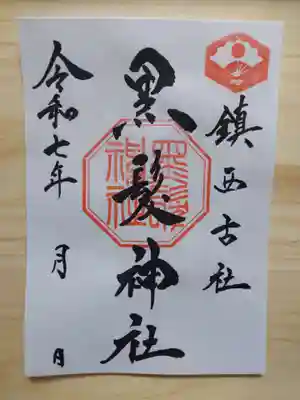 鎮西古社
黒髪神社
令和七年 月 日
黒髪神社